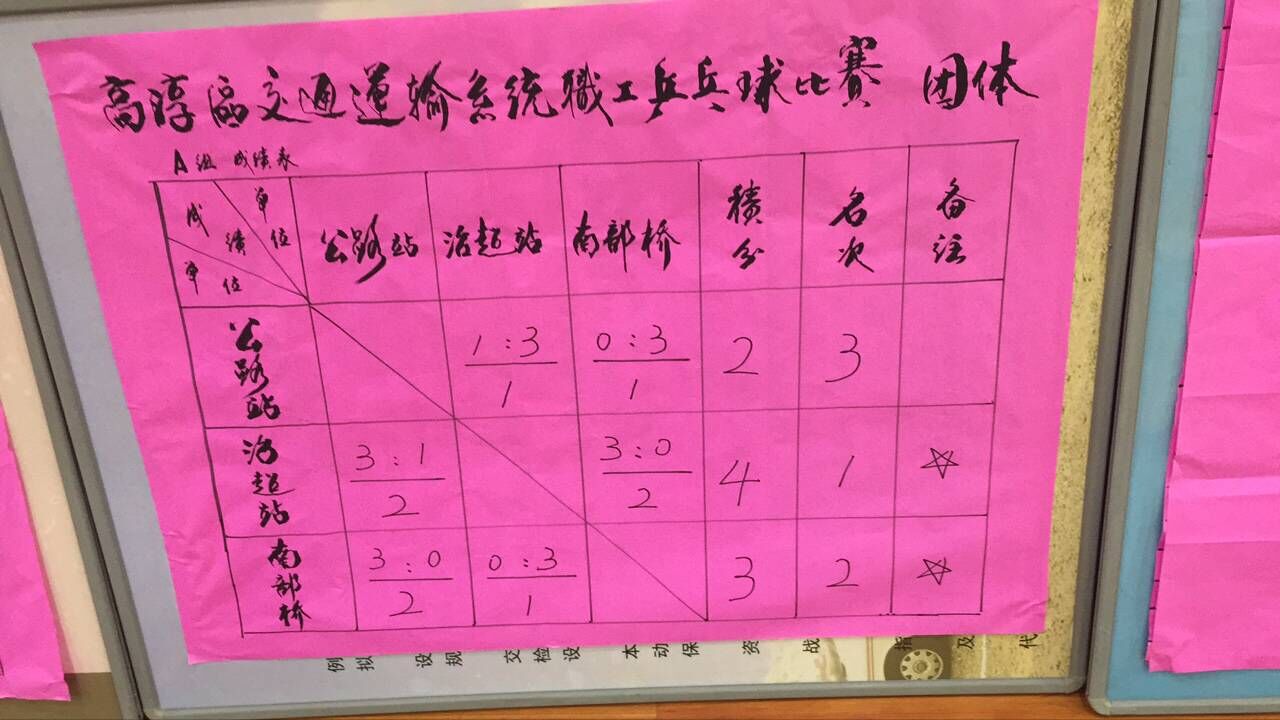 高淳區交通運输系统職工乒乓球比賽 团体
A组 成绩表
成绩 单位 单位 公路站 治超站 南部桥 積分 名次 备注
公路站 1:3 0:3 2 3
1 1
治超站 3:1 3:0 4 1 ☆
2 2
南部桥 3:0 0:3 3 2 ☆
2 1
例 拟 设 规 交 检 设 本 动 保 资 战 指 及 代